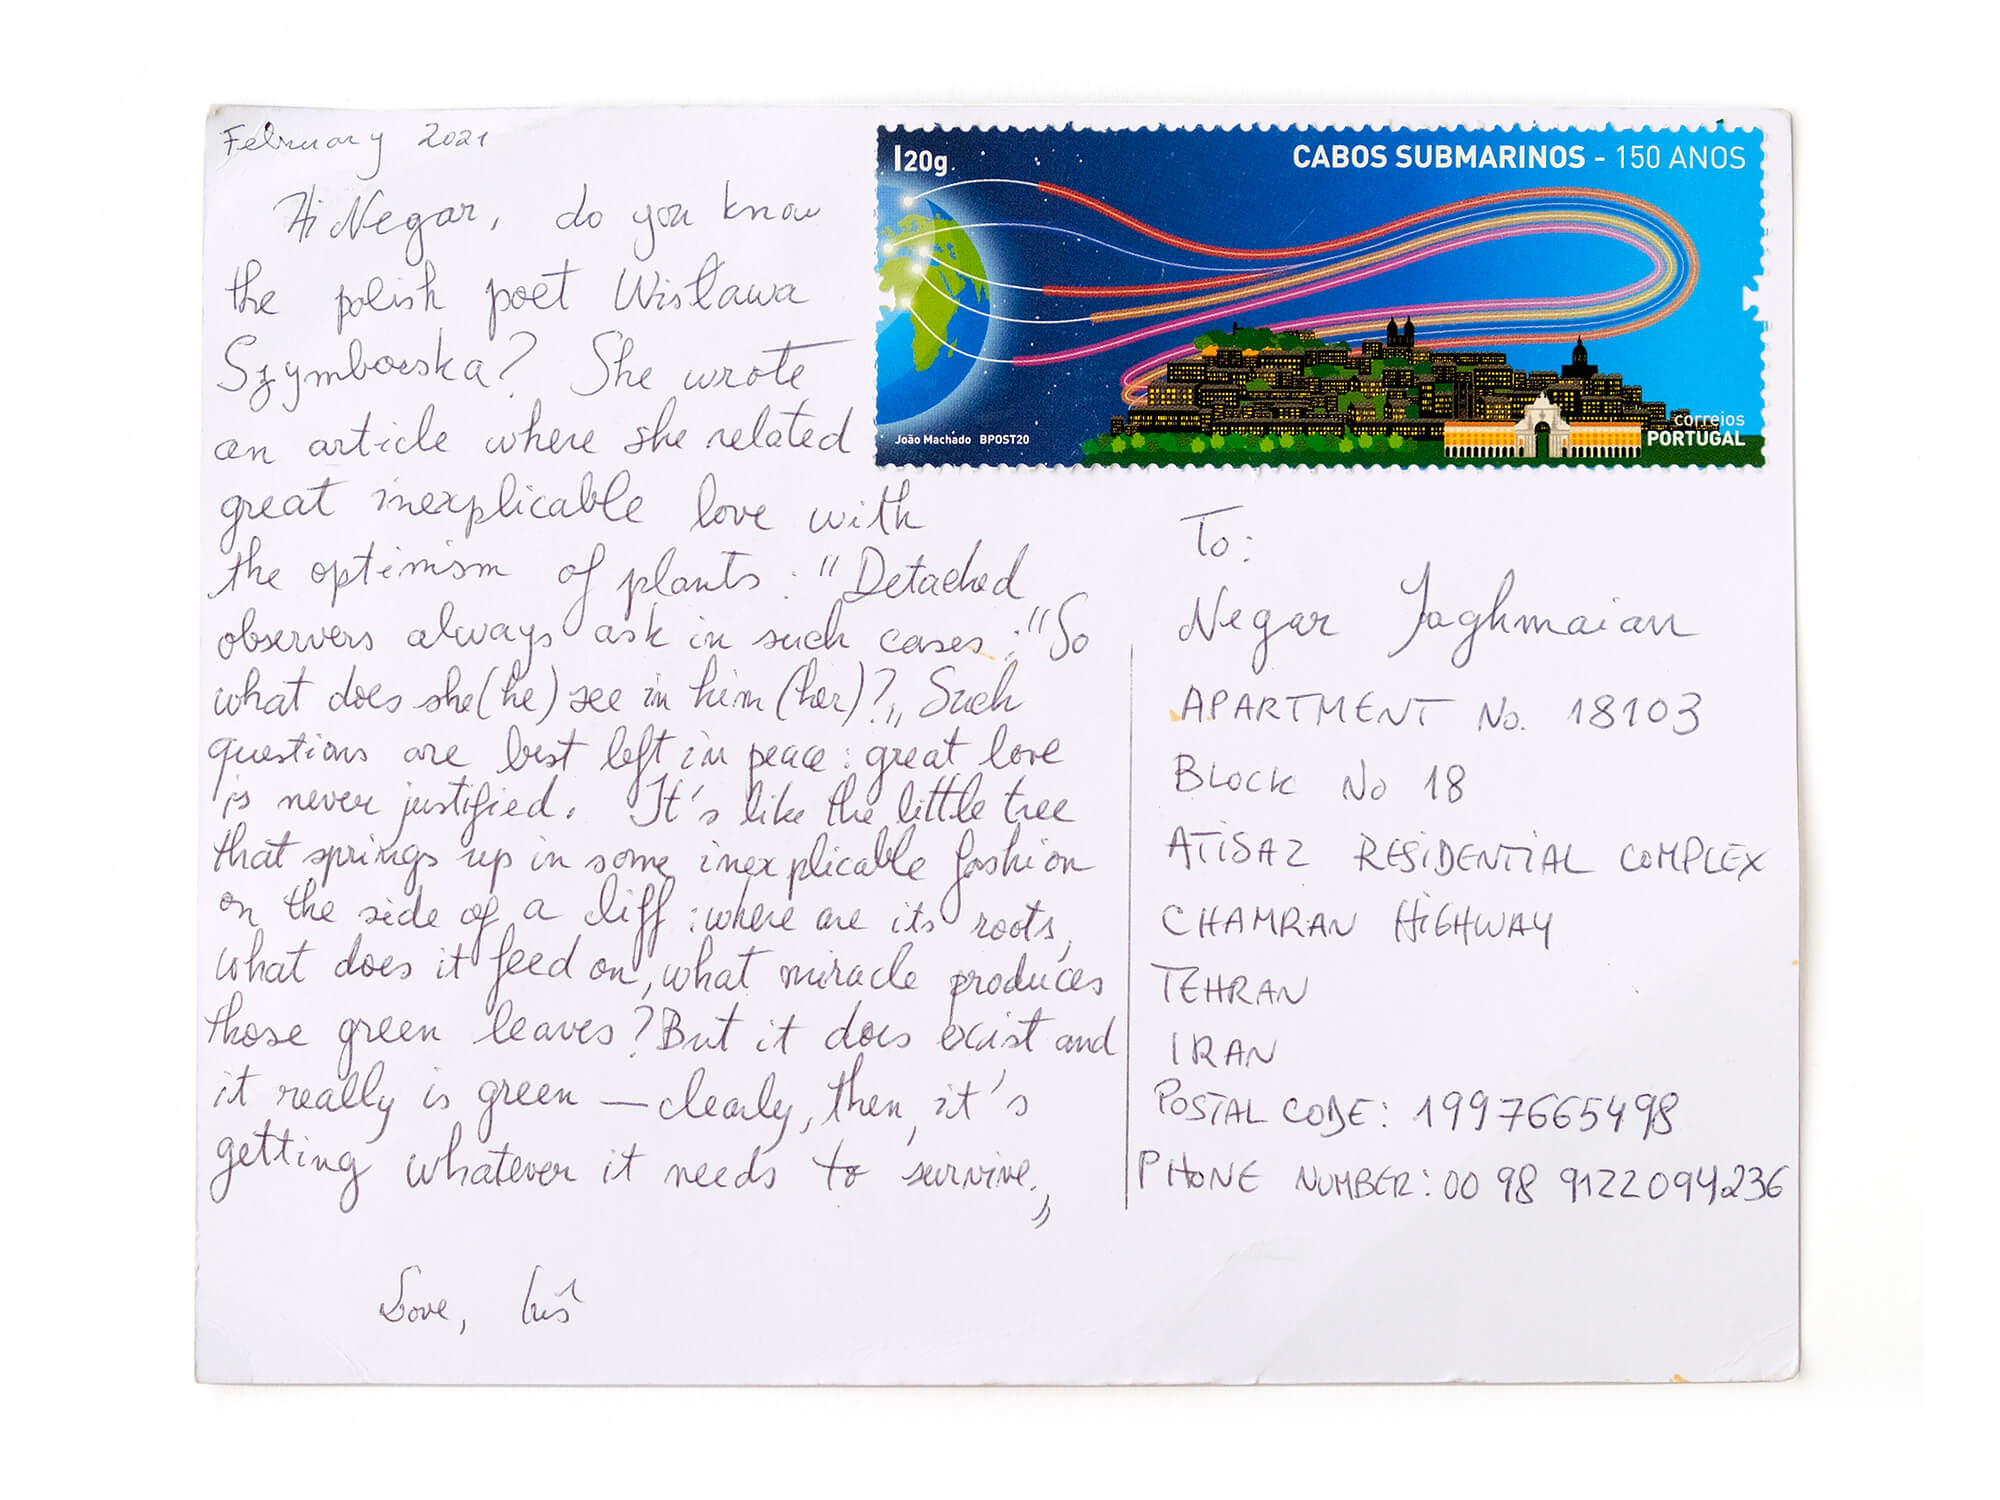 February 2021
Hi Negar, do you know
the polish poet Wisława
Szymborska? She wrote
an article where she related
great inexplicable love with
the optimism of plants: "Detached
observers always ask in such cases: "So
what does she(he) see in him (her)?„ Such
questions are best left in peace: great love
is never justified. It's like the little tree
that springs up in some inexplicable fashion
on the side of a cliff: where are its roots,
what does it feed on, what miracle produces
those green leaves? But it does exist and
it really is green — clearly, then, it's
getting whatever it needs to survive.„
Love,
I20g
CABOS SUBMARINOS - 150 ANOS
João Machado BPOST20
correios
PORTUGAL
To:
Negar Yaghmaian
APARTMENT No. 18103
BLOCK No 18
ATISAZ RESIDENTIAL COMPLEX
CHAMRAN HIGHWAY
TEHRAN
IRAN
POSTAL CODE: 1997665498
PHONE NUMBER: 00 98 9122094236